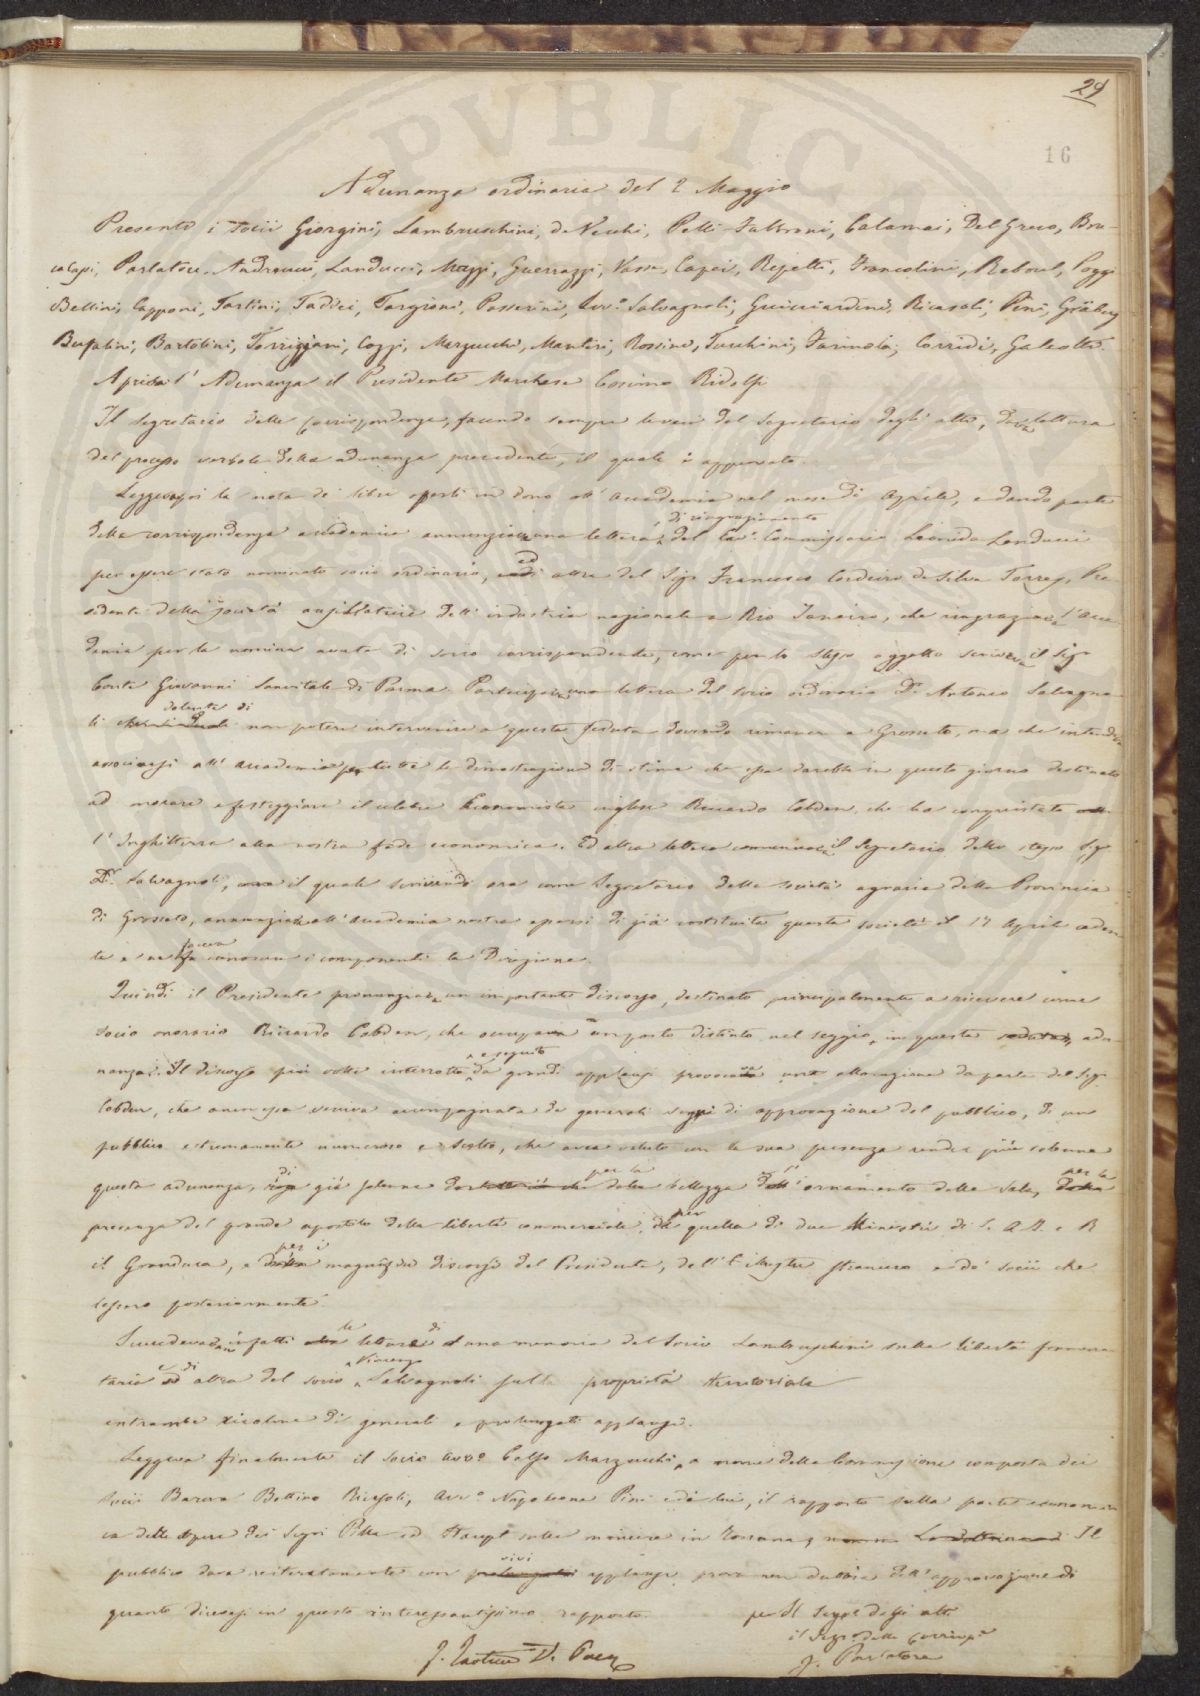 29
16
Adunanza ordinaria del 2 Maggio
Presenti i socii Giorgini, Lambruschini, de Vecchi, Pelli-Fabbroni, Calamai, Del Greco, Bru-
calassi, Parlatore, Andreucci, Landucci, Mazzi, Guerrazzi, Vasse, Capei, Repetti, Franceschini, Reboul, Poggi
Bettini, Capponi, Tartini, Taddei, Targioni, Passerini, Salvagnoli, Guicciardini, Ricasoli, Pini, Gräberg
Bufalini, Bartolini, Torrigiani, Cozzi, Marzucchi, Manteri, Rossini, Turchini, Farinola, Corridi, Galeotti.
Apriva l'Adunanza il Presidente Marchese Cosimo Ridolfi
Il Segretario delle Corrispondenze, facendo sempre le veci del Segretario degli atti, dava lettura
del processo verbale della adunanza precedente, il quale è approvato.
Leggevasi la nota di libri offerti in dono all'Accademia nel mese di Aprile, e dando parte
della corrispondenza accademica annunziava una lettera di ringraziamento del Cav. Commissario Leonida Landucci
per essere stato nominato socio ordinario, ed altra del Sig. Francesco Cordeiro da Silva Torres, Pre-
sidente della Società ausiliatrice dell'industria nazionale a Rio Janeiro, che ringraziava l'acca-
demia per la nomina avuta di socio corrispondente, come per lo stesso oggetto scriveva il Sig.
Conte Giovanni Sanvitale di Parma. Partecipava una lettera del socio ordinario D. Antonio Salvagno-
li dolente di non potere intervenire a questa seduta dovendo rimanere a Grosseto, ma che intendeva
associarsi all'Accademia per tutte le dimostrazioni di stima che essa darebbe in questo giorno destinato
ad onorare e festeggiare il celebre Economista inglese Riccardo Cobden, che ha conquistato
l'Inghilterra alla nostra fede economica. Ed altra lettera comunicava il Segretario dello stesso Sig.
D. Salvagnoli, il quale scrivendo ora come Segretario della società agraria della Provincia
di Grosseto, annunziava all'Accademia nostra essersi di già costituita questa società il 17 Aprile caden-
te e ne faceva conoscere i componenti la Direzione.
Quindi il Presidente pronunziava un importante discorso, destinato principalmente a ricevere come
socio onorario Riccardo Cobden, che occupava un posto distinto nel seggio, in questa adu-
nanza. Il discorso più volte interrotto e seguito da grandi applausi provocava una allocuzione da parte del Sig.
Cobden, che anch'essa veniva accompagnata da generali segni di approvazione del pubblico, di un
pubblico estremamente numeroso e scelto, che avea voluto con la sua presenza render più solenne
questa adunanza, di già solenne per la bellezza e l'ornamento della Sala, per la
presenza del grande apostolo della libertà commerciale, per quella di due Ministri di S. A. I. e R
il Granduca, e per i magnifici discorsi del Presidente, dell'illustre straniero e de' socii che
lessero posteriormente.
Succedevano infatti le letture di una memoria del Socio Lambruschini sulla libertà frumen-
taria e di altra del socio Vincenzo Salvagnoli sulla proprietà territoriale
entrambe ricolme di generali e prolungati applausi.
Leggeva finalmente il socio Avv. Celso Marzucchi, a nome della Commissione composta dei
socii Barone Bettino Ricasoli, Avv. Napoleone Pini e da lui, il rapporto sulla parte economi-
ca delle opere dei Sigri Pilla ed Haupt sulle miniere in Toscana. Il
pubblico dava reiteratamente con vivi applausi prova non dubbia dell'approvazione di
quanto dicevasi in questo interessantissimo rapporto.
per Il Segr. degli atti
il Segr. delle Corrisp.
F. Parlatore